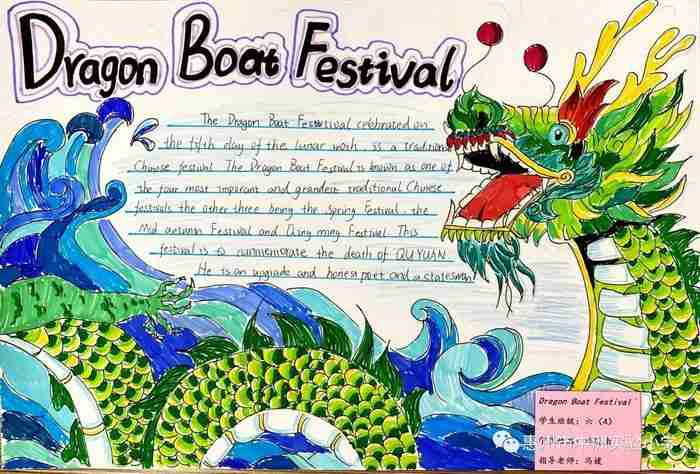 Dragon Boat Festival
The Dragon Boat Festival celebrated on
the fifth day of the lunar month, is a traditional
Chinese festival. The Dragon Boat Festival is known as one of
the four most imporant and grandest traditional Chinese
festivals, the other three being the Spring Festival, the
Mid autumn Festival and Qing ming Festival. This
festival is to commemorate the death of QU YUAN
He is an upgrade and honest poet and a statesman!
Dragon Boat Festival
学生班级：六（A）
学生姓名：
指导老师：冯婕